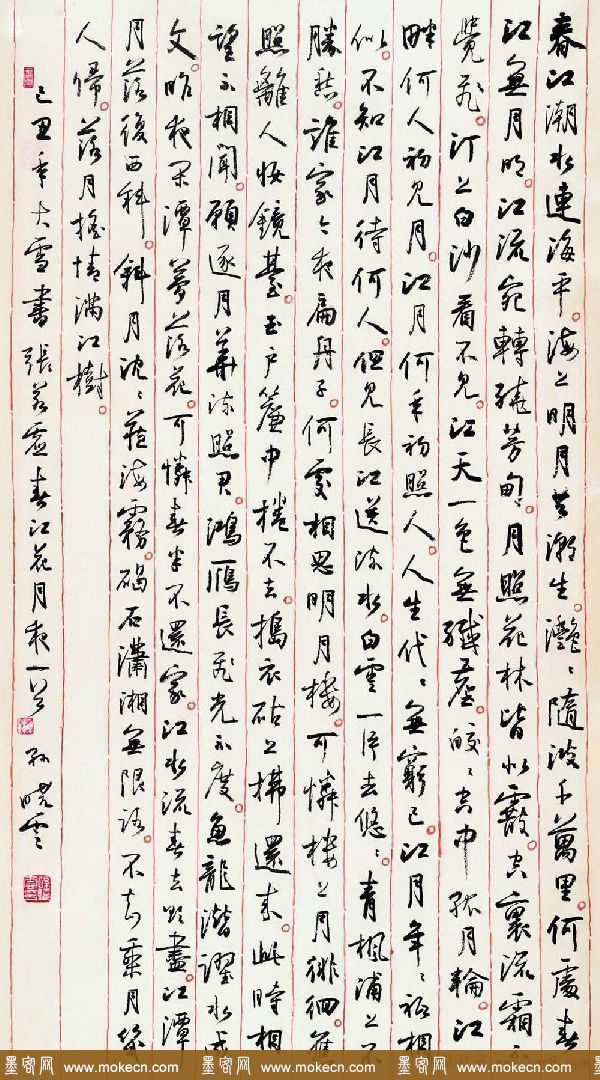 春江潮水連海平。海上明月共潮生。灩々隨波千萬里。何處春
江無月明。江流宛轉繞芳甸。月照花林皆似霰。空裏流霜不
覺飛。汀上白沙看不見。江天一色無纖塵。皎々空中孤月輪。江
畔何人初見月。江月何年初照人。人生代々無窮已。江月年々祗相
似。不知江月待何人。但見長江送流水。白雲一片去悠々。青楓浦上不
勝愁。誰家今夜扁舟子。何處相思明月樓。可憐樓上月徘徊。應
照離人妝鏡臺。玉戶簾中捲不去。搗衣砧上拂還來。此時相
望不相聞。願逐月華流照君。鴻雁長飛光不度。魚龍潛躍水成
文。昨夜閑潭夢落花。可憐春半不還家。江水流春去欲盡。江潭
月落復西斜。斜月沈々藏海霧。碣石瀟湘無限路。不知乘月幾
人歸。落月搖情滿江樹。
己丑年大雪書 張若虛春江花月夜一首 孫曉雲
墨客网 www.mokecn.com 墨客网 www.mokecn.com 墨客网 www.mokecn.com